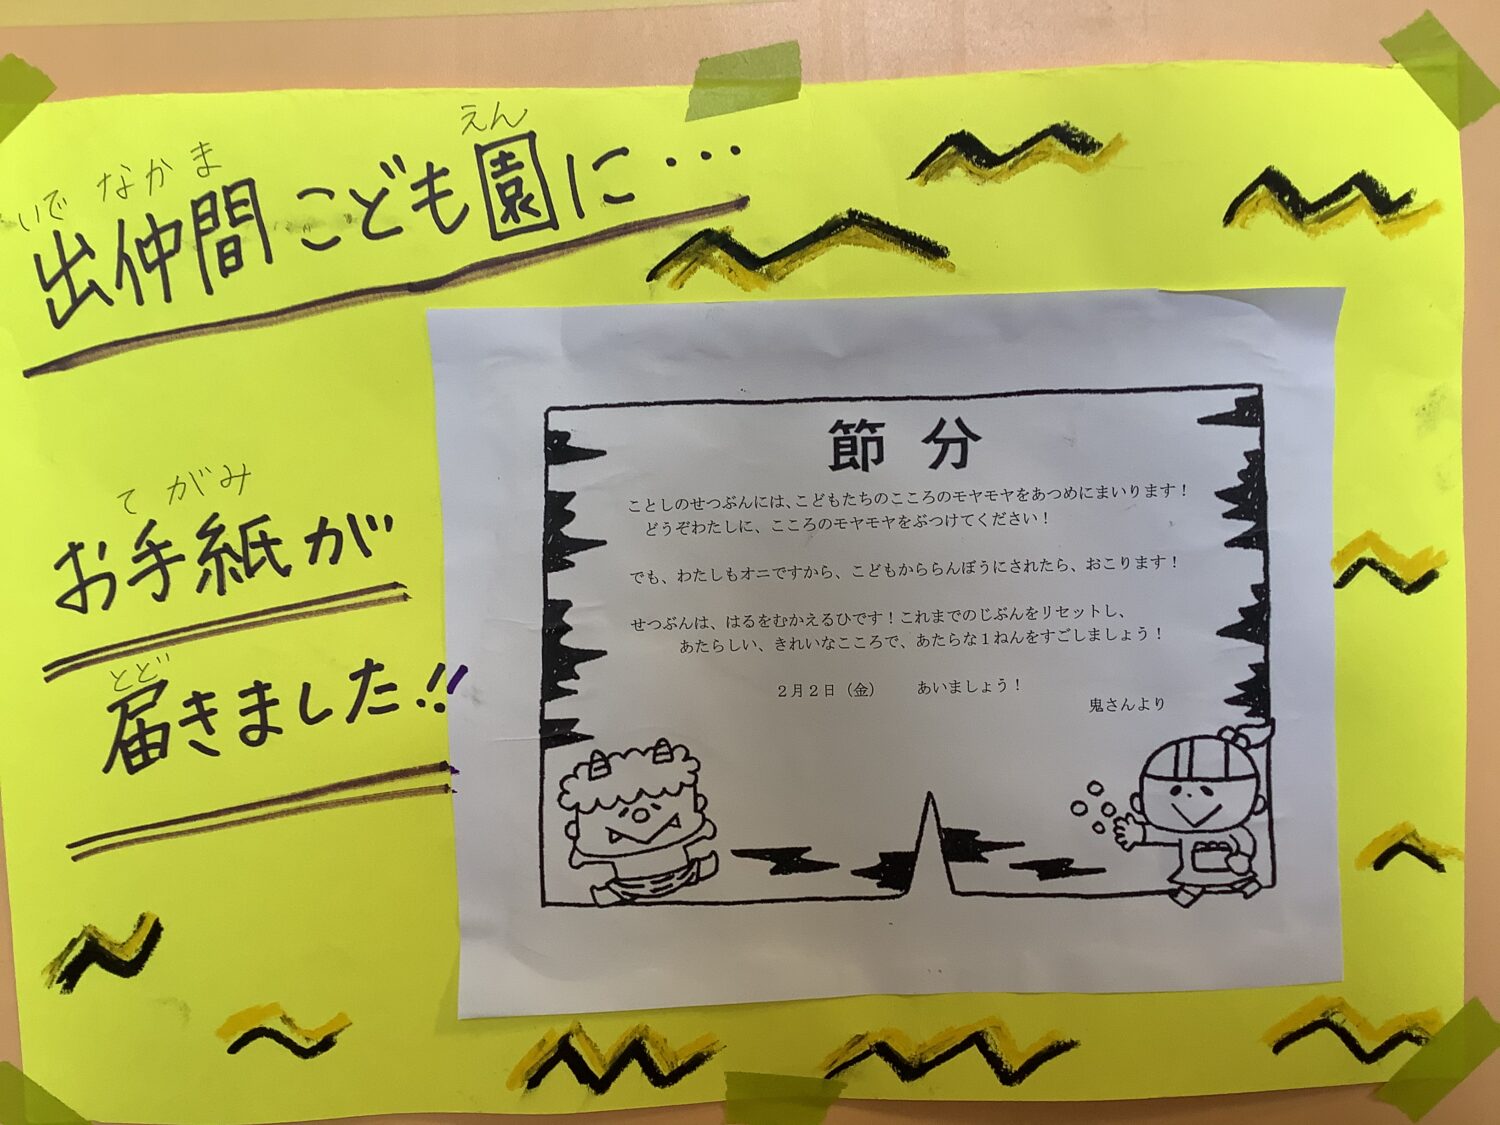 いで なかま えん
出仲間こども園に…
てがみ
お手紙が
とど
届きました!!
節分
ことしのせつぶんには、こどもたちのこころのモヤモヤをあつめにまいります！
どうぞわたしに、こころのモヤモヤをぶつけてください！
でも、わたしもオニですから、こどもかららんぼうにされたら、おこります！
せつぶんは、はるをむかえるひです！これまでのじぶんをリセットし、
あたらしい、きれいなこころで、あたらな１ねんをすごしましょう！
２月２日（金） あいましょう！
鬼さんより